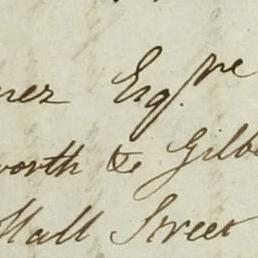 ner Esqre
worth & Gilb
Hall Street